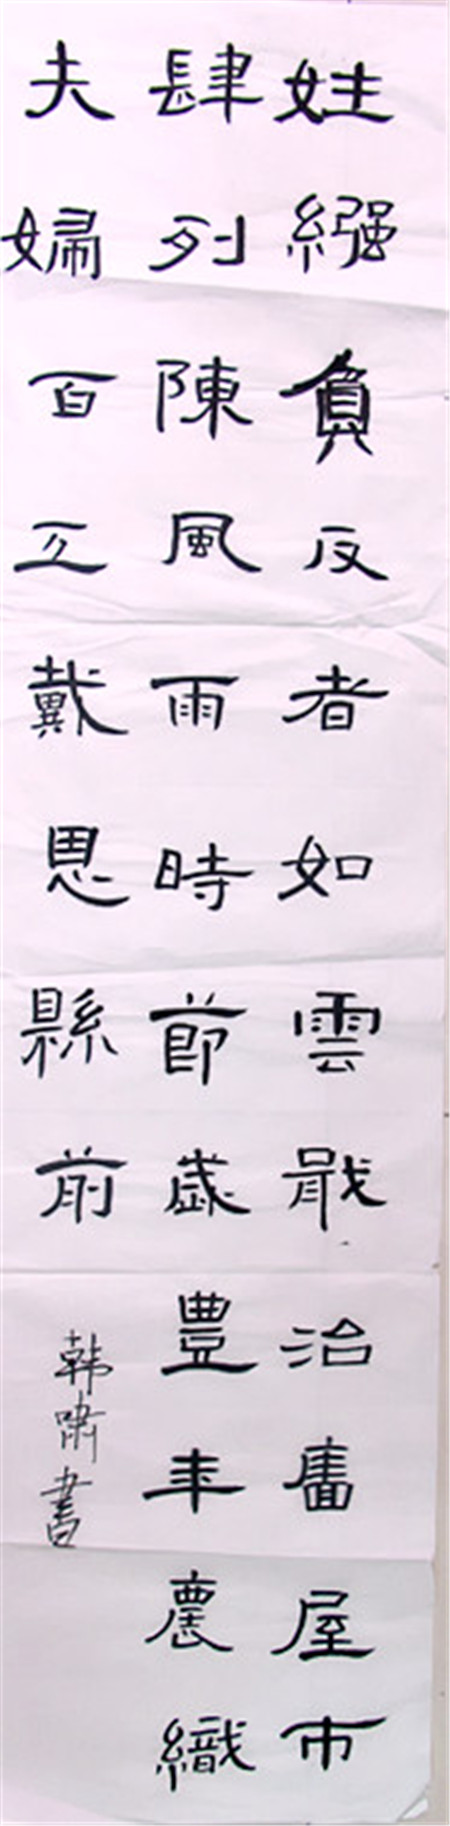 姓繦負反者如雲戢治廧屋市
肆列陳風雨時節歲豊年農織
夫婦百工戴恩縣前
韩啸書